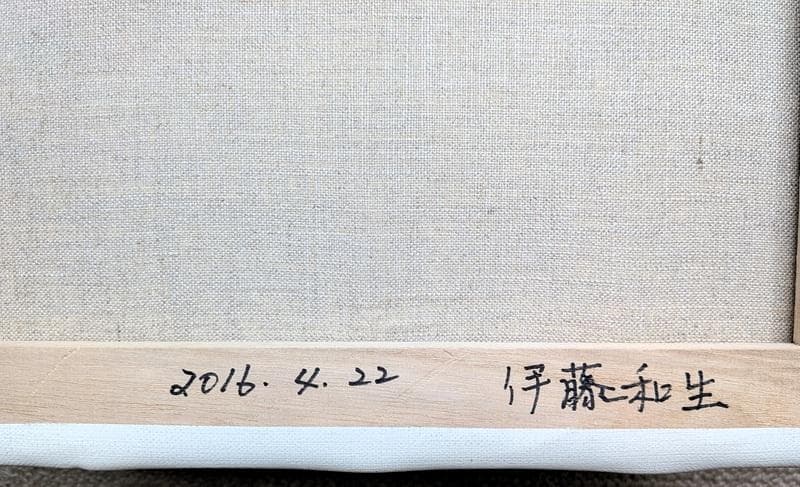 2016. 4. 22 伊藤和生